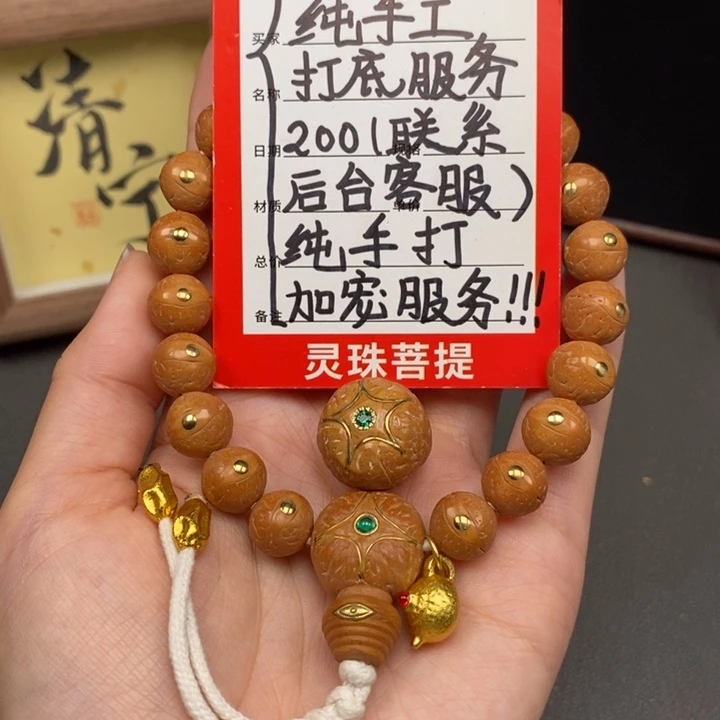 纯手工
买家
打底服务
名称
200(联系
日期 规格
后台客服)
材质 单价
纯手打
总价
加宠服务!!!
备注
灵珠菩提
清宁